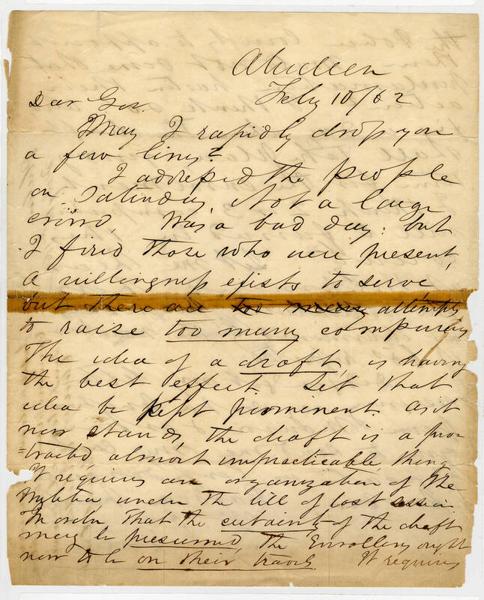 Aberdeen
Feby 10/62
Dear Gov.
May I rapidly drop you
a few lines?
I addressed the people
on Saturday. Not a large
crowd. Was a bad day: but
I fired those who were present,
a willingness exists to serve
but there are too many attempts
to raise too many companies
The idea of a draft is having
the best effect. Let that
idea be kept prominent. as it
now stands, the draft is a pro-
=tracted almost impracticable thing
It requires an organization of the
Militia under the bill of last session.
In order that the certainty of the draft
may be presumed the Enrollers ought
now to be on their travels. It requires